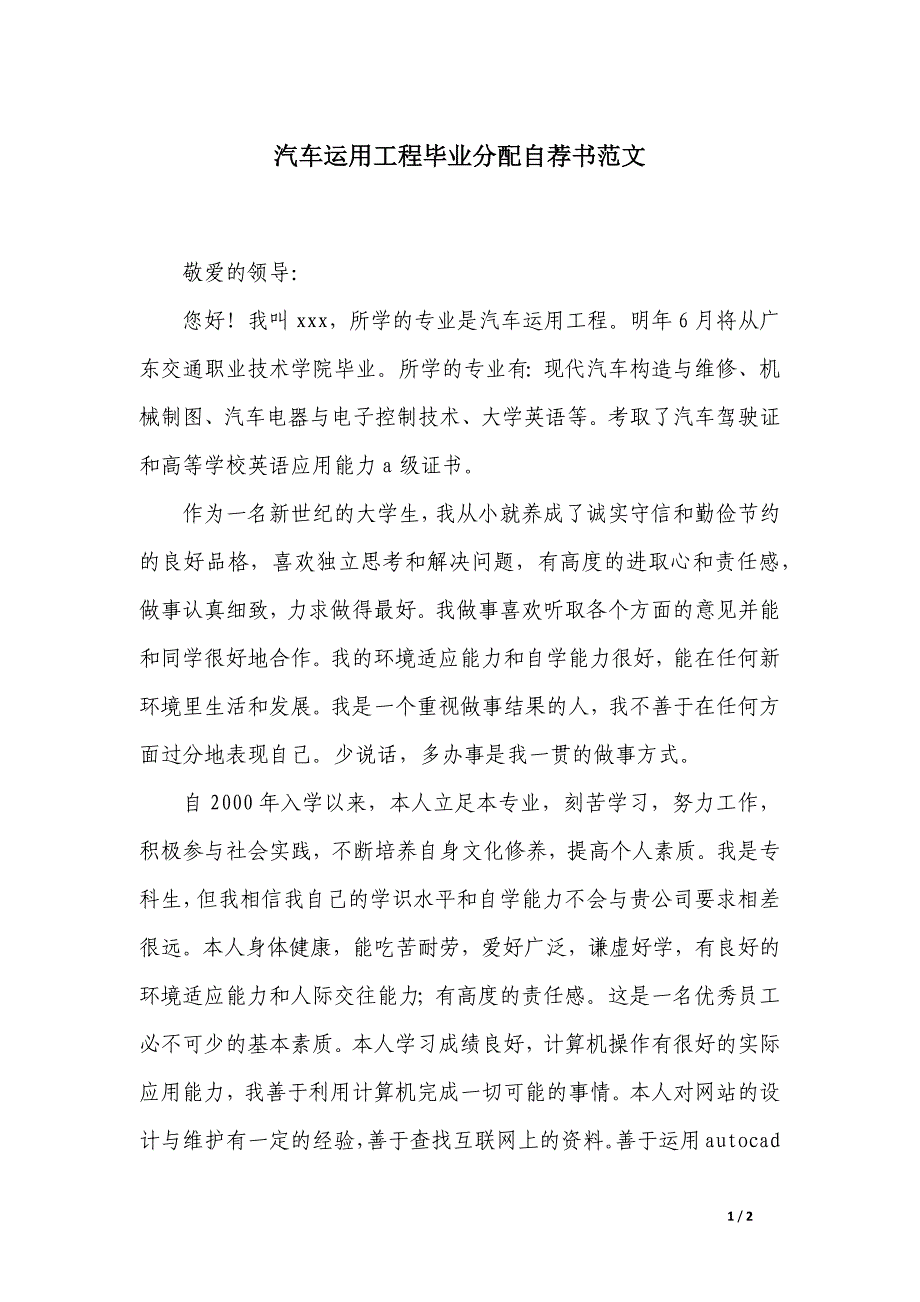 汽车运用工程毕业分配自荐书范文
敬爱的领导：
您好！我叫 xxx，所学的专业是汽车运用工程。明年 6 月将从广
东交通职业技术学院毕业。所学的专业有：现代汽车构造与维修、机
械制图、汽车电器与电子控制技术、大学英语等。考取了汽车驾驶证
和高等学校英语应用能力 a 级证书。
作为一名新世纪的大学生，我从小就养成了诚实守信和勤俭节约
的良好品格，喜欢独立思考和解决问题，有高度的进取心和责任感，
做事认真细致，力求做得最好。我做事喜欢听取各个方面的意见并能
和同学很好地合作。我的环境适应能力和自学能力很好，能在任何新
环境里生活和发展。我是一个重视做事结果的人，我不善于在任何方
面过分地表现自己。少说话，多办事是我一贯的做事方式。
自 2000 年入学以来，本人立足本专业，刻苦学习，努力工作，
积极参与社会实践，不断培养自身文化修养，提高个人素质。我是专
科生，但我相信我自己的学识水平和自学能力不会与贵公司要求相差
很远。本人身体健康，能吃苦耐劳，爱好广泛，谦虚好学，有良好的
环境适应能力和人际交往能力；有高度的责任感。这是一名优秀员工
必不可少的基本素质。本人学习成绩良好，计算机操作有很好的实际
应用能力，我善于利用计算机完成一切可能的事情。本人对网站的设
计与维护有一定的经验，善于查找互联网上的资料。善于运用 autocad
1 / 2